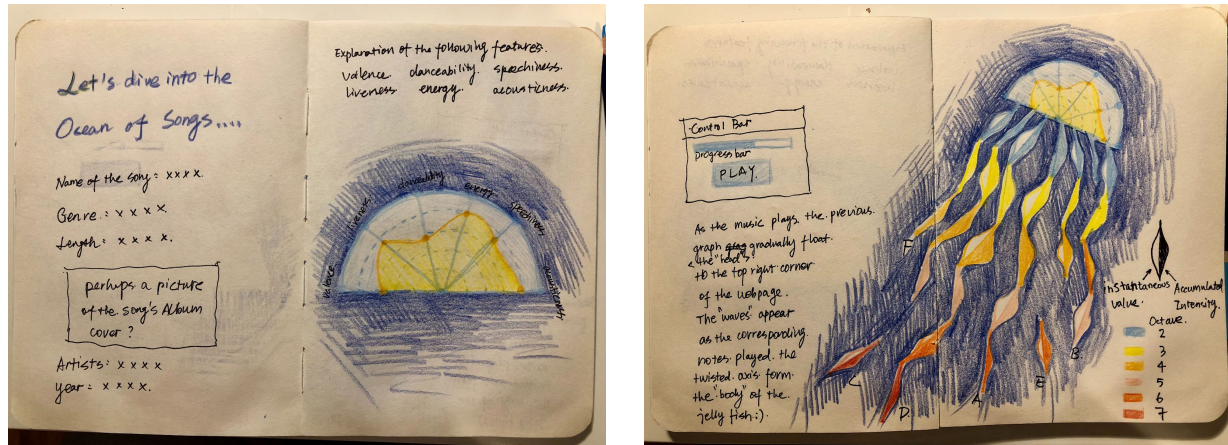 Let's dive into the
Ocean of Songs....
Name of the song: xxxx.
Genre: xxxx.
Length: xxxx.
perhaps a picture
of the song's Album
cover?
Artists: xxxx
Year: xxxx.
Explanation of the following features.
valence danceability. speechiness.
liveness energy. acousticness.
valence
liveness
danceability
energy
speechiness
acousticness
Control Bar
progress bar
PLAY.
As the music plays, the previous.
graph gradually float.
the "head"
to the top right corner
of the webpage.
The "waves" appear
as the corresponding
notes played. the
twisted axis form.
the "body" of the
jelly fish:).
F
C
D
A
E
B
instantaneous
value.
Accumulated
Intensity.
Octave.
2
3
4
5
6
7